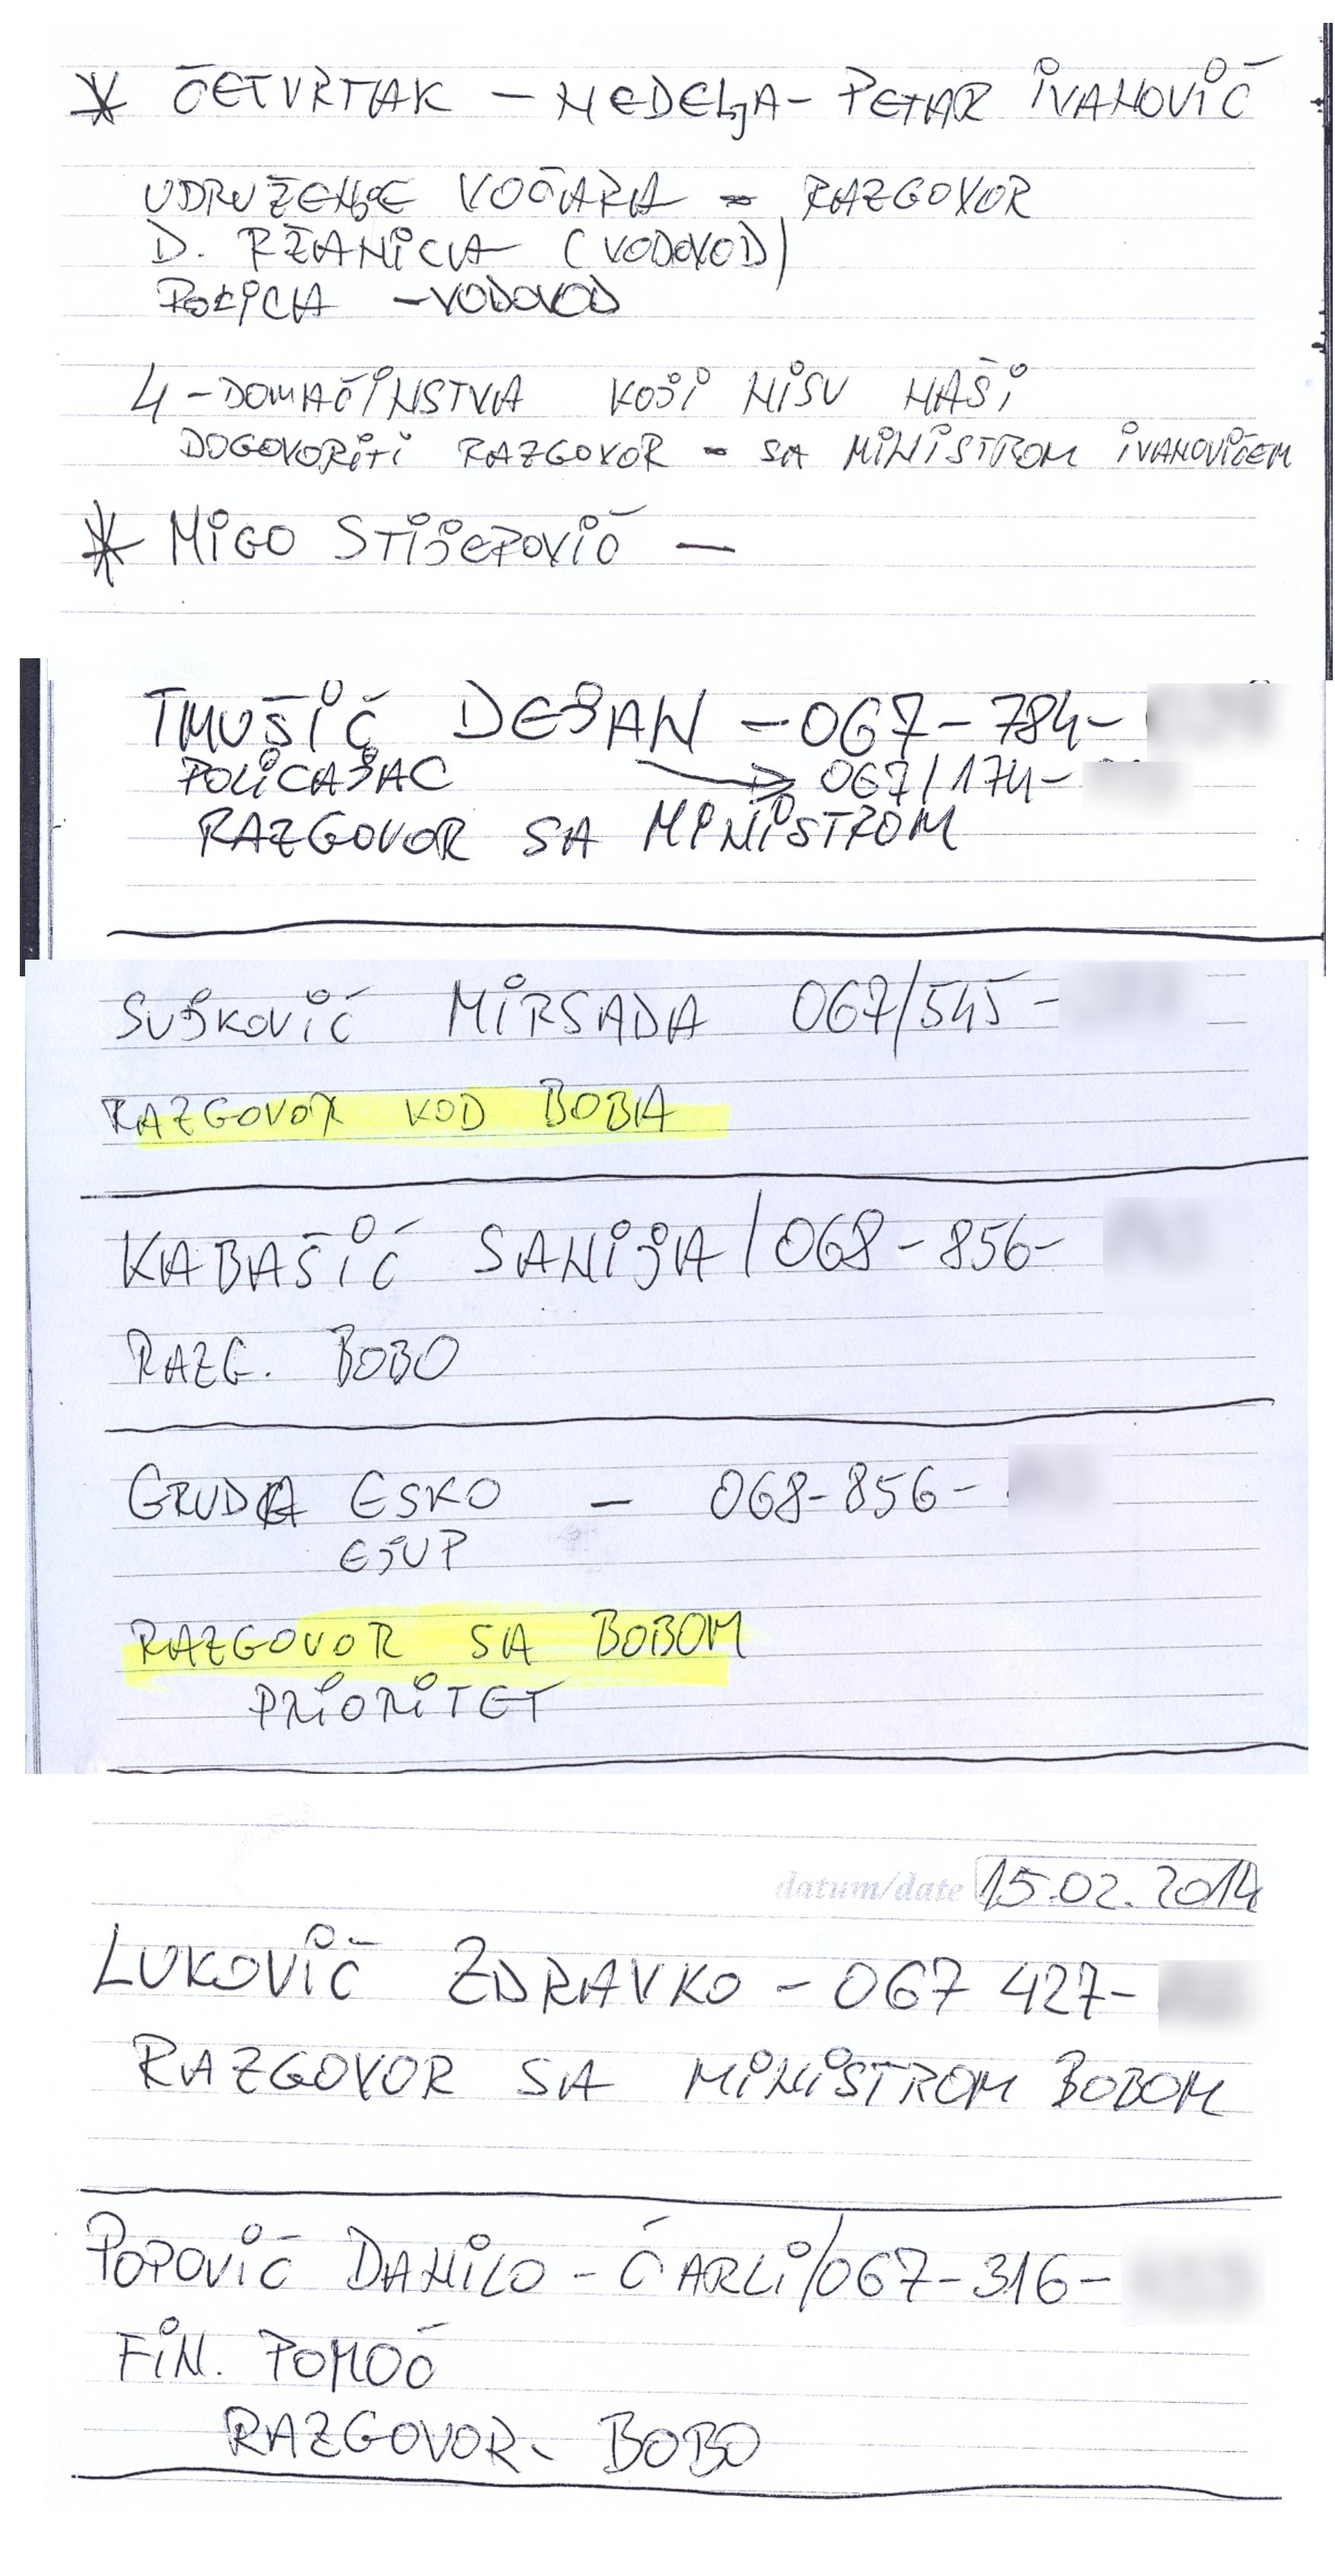 * ČETVRTAK – NEDELJA – PETAR IVANOVIĆ
UDRUŽENJE VOĆARA – RAZGOVOR
D. RŽANICA (VODOVOD)
– VODOVOD
4 – DOMAĆINSTVA KOJI NISU NAŠI
DOGOVORITI RAZGOVOR – SA MINISTROM IVANOVIĆEM
* MIGO STIJEPOVIĆ –
TMUŠIĆ DEJAN – 067 – 784 –
POLICAJAC → 067/174 –
RAZGOVOR SA MINISTROM
SUJKOVIĆ MIRSADA 067/545 –
RAZGOVOR KOD BOBA
KABAŠIĆ SANIJA / 068 – 856 –
RAZG. BOBO
GRUDA ESKO – 068 – 856 –
EJUP
RAZGOVOR SA BOBOM
PRIORITET
datum/date 15.02.2014
LUKOVIĆ ZDRAVKO – 067 427 –
RAZGOVOR SA MINISTROM BOBOM
POPOVIĆ DANILO – ĆARLI / 067 – 316 –
FIN. POMOĆ
RAZGOVOR – BOBO